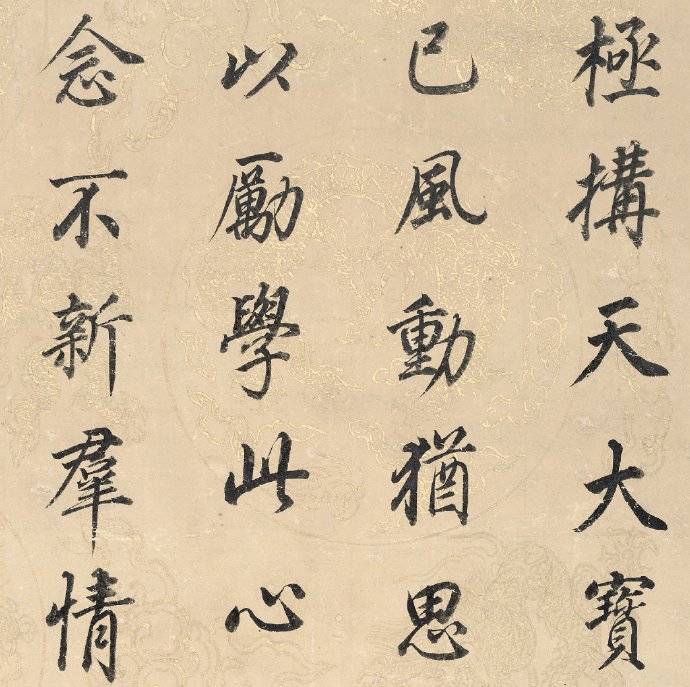 極構天大寶
已風動猶思
以勵學此心
念不新羣情